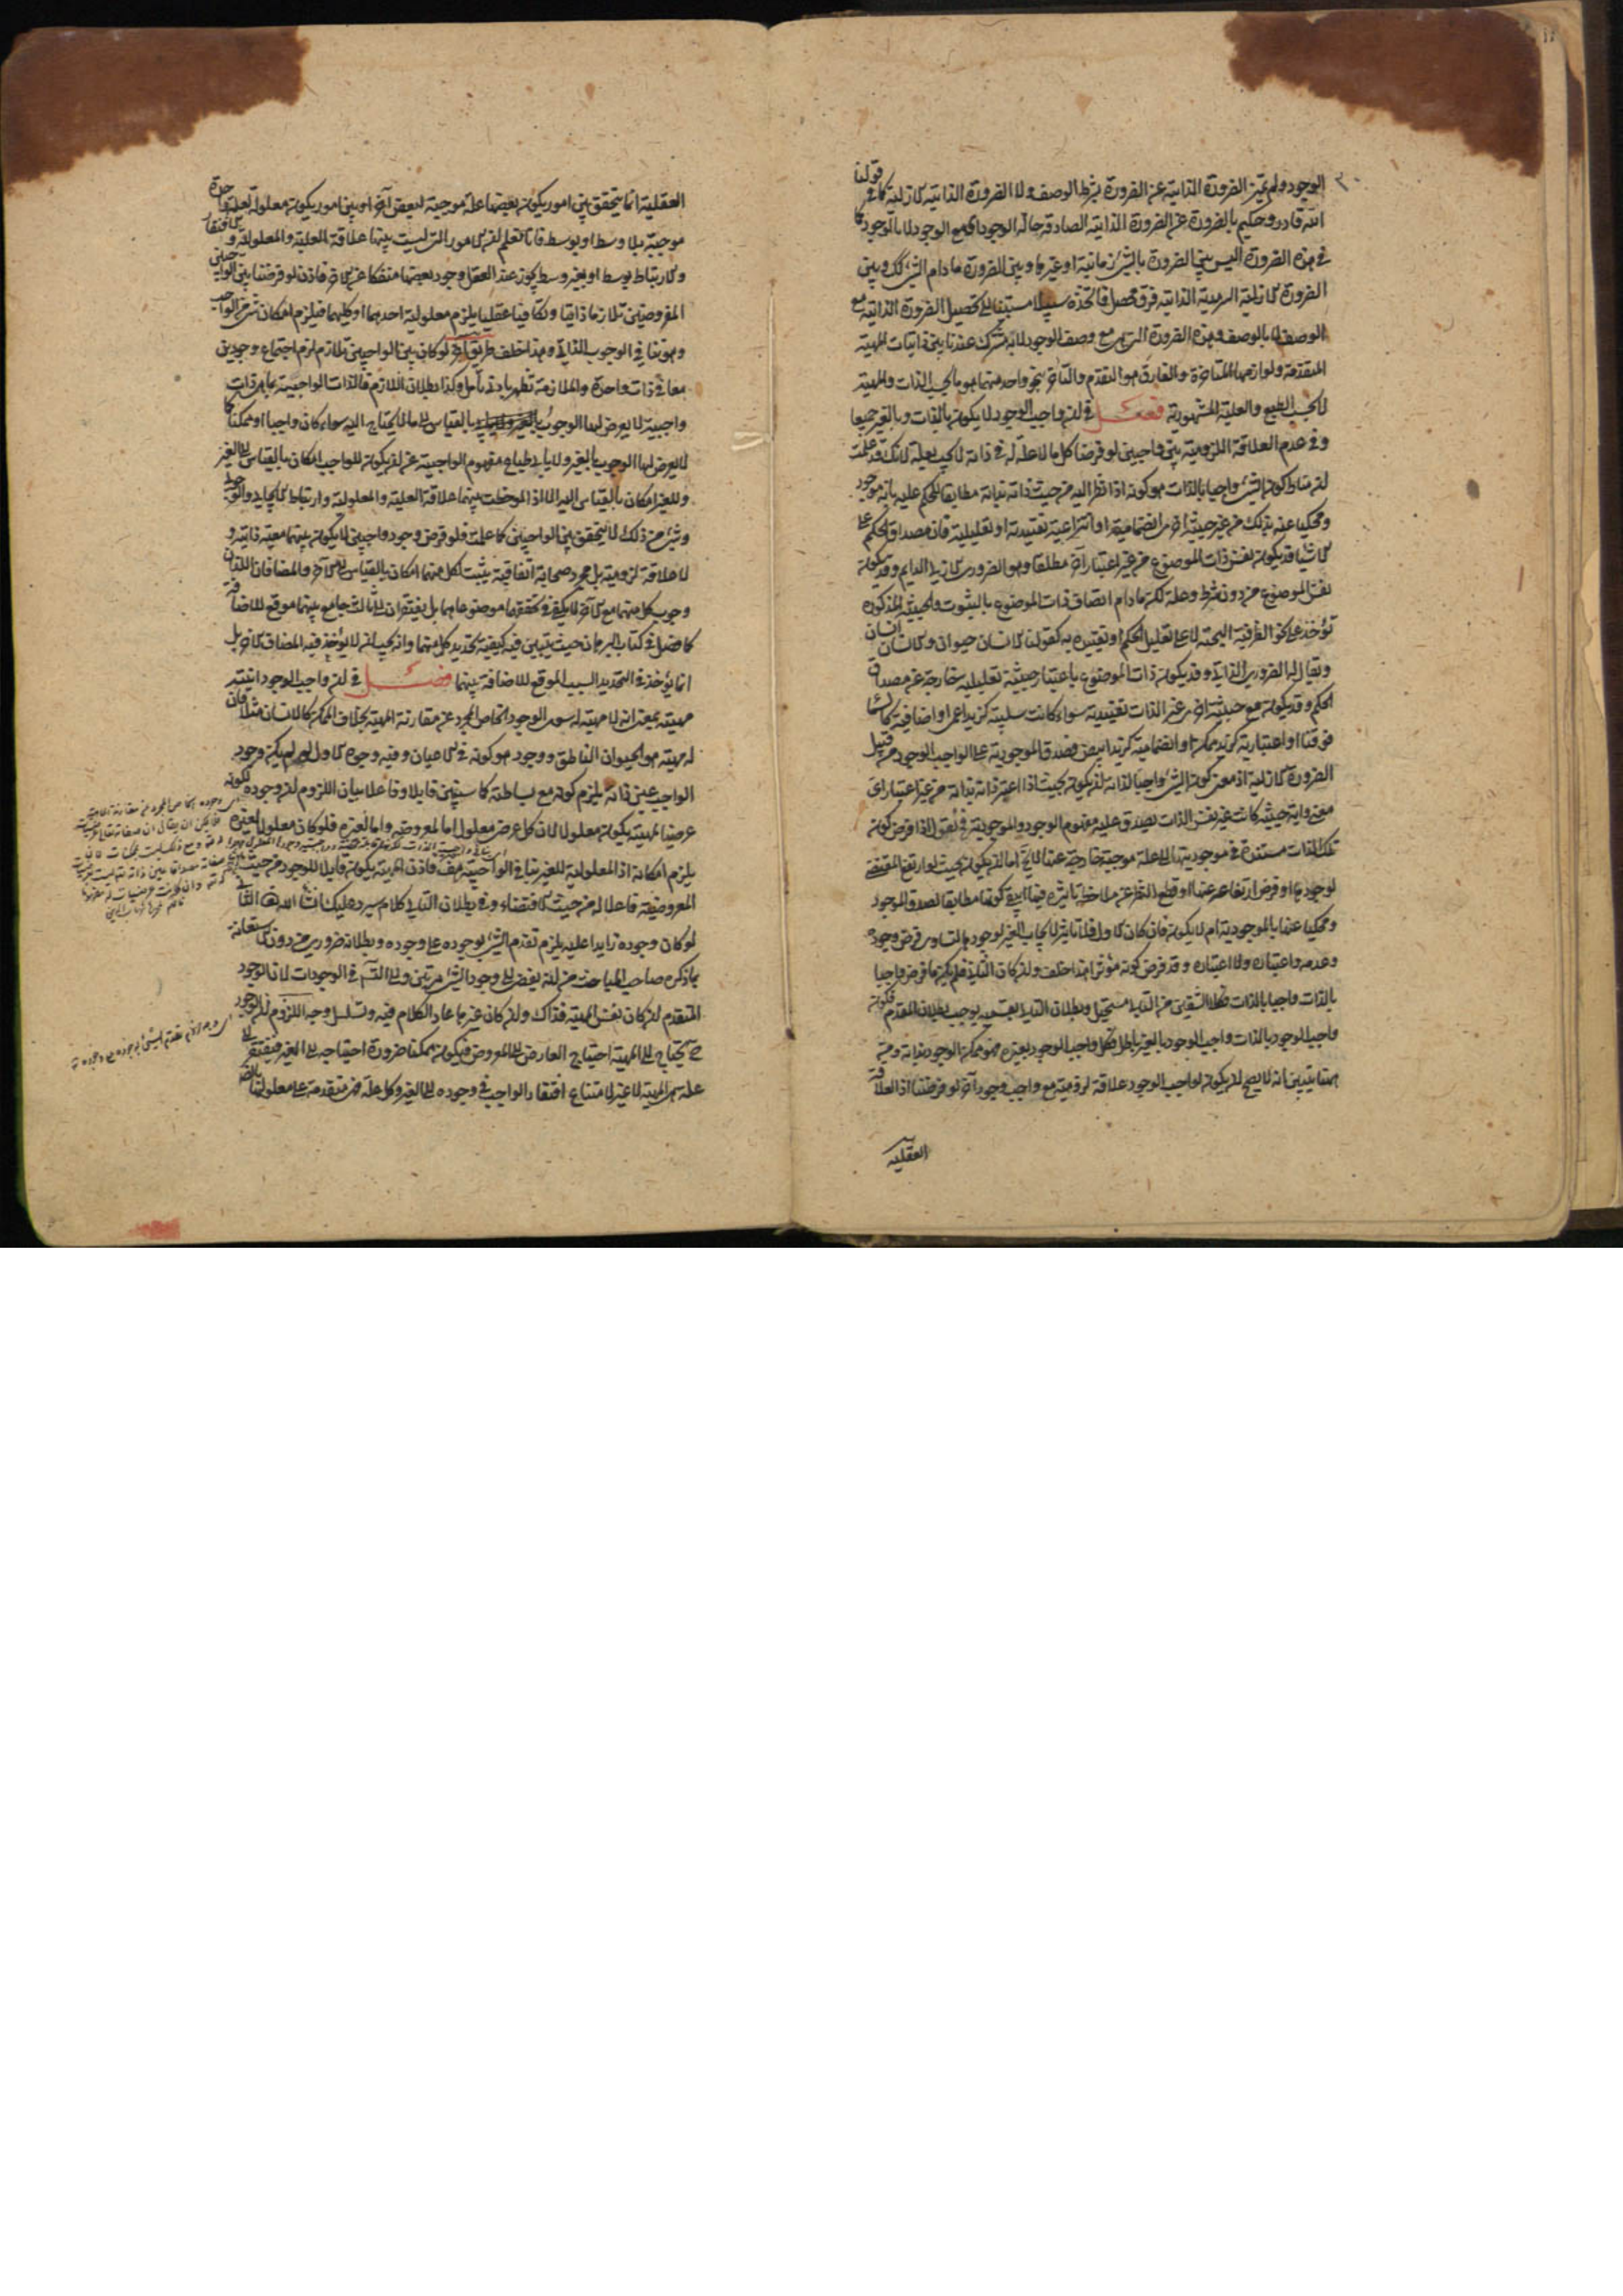 الوجود ولم يميز الضرورة الذاتية عن الضرورة بشرط الوصف ولا الضرورة الذاتية الازلية كما في قولنا
الله قادر وحكيم بالضرورة عن الضرورة الذاتية الصادقة حالة الوجود اى مع الوجود لا بالوجود كما
في هذه الضرورة اليس بين الضرورة بالشئ زمانية او غيرها وبين الضرورة ما دام الشئ كك وبين
الضرورة الازلية السرمدية الذاتية فرق محصل فاتخذه سبيلا مستبينا الى تحصيل الضرورة الذاتية مع
الوصف لا بالوصف وهذه الضرورة التي مع وصف الوجود لا به مشترك عندنا بين ذاتيات المهية
المتقدمة ولوازمها المتاخرة والفارق هو التقدم والتاخر بنحو واحد منهما هو ما بحسب الذات والمهية
لا بحسب الطبع والعلية المشهورية فصل في ان واجب الوجود لا يكون بالذات وبالغير جميعا
وفي عدم العلاقة اللزومية بين واجبين لو فرضنا كل ما لا علة له في ذاته لا يجب بعلة لانك قد علمت
ان مناط كون الشئ واجبا بالذات هو كونه اذا نظر اليه من حيث ذاته بذاته مطابقا للحكم عليه بانه موجود
ومحكيا عنه بذلك من غير حيثية اخرى انضمامية او انتزاعية تقييدية او تعليلية فان مصداق الحكم على
الاشيا قد يكون نفس ذات الموضوع من غير اعتبار آخر مطلقا وهو الضروري الازلي الدايم وقد يكون
نفس الموضوع من دون شرط وعلة لكن ما دام اتصاف ذات الموضوع بالثبوت والحيثية المذكورة
تؤخذ على نحو الظرفية البحتة لا على تعليل الحكم او تقييده به كقولنا الانسان حيوان والانسان انسان
ويقال له الضروري الذاتي وقد يكون ذات الموضوع باعتبار حيثية تعليلية خارجة عن مصداق
الحكم وقد يكون مع حيثية اخرى غير الذات تقييدية سواء كانت سلبية كزيد اعمى او اضافية كالسماء
فوقنا او اعتبارية كزيد ممكن او انضمامية كزيد ابيض فصدق الموجودية على الواجب الوجود من قبيل
الضرورة الازلية اذ معنى كون الشئ واجبا لذاته ان يكون بحيث اذا اعتبر ذاته بذاته من غير اعتبار اى
معنى واية حيثية كانت غير نفس الذات يصدق عليه مفهوم الوجود والموجودية فنقول اذا فرض كون
تلك الذات مستندة في موجوديتها الى علة موجبة خارجة عنها لا يخ اما ان يكون بحيث لو ارتفع المقتضى
لوجودها او فرض ارتفاعه عنها او قطع النظر عن ملاحظة تاثيره فيها ابقى كونها مطابقا لصدق الموجود
ومحكيا عنها بالموجودية ام لا يكون فان كان الاول فلا تاثير لايجاب الغير لوجودها لتساوي فرض وجوده
وعدمه واعتباره ولا اعتباره وقد فرض كونه مؤثرا هذا خلف وان كان الثاني فلم يكن ما فرض واجبا
بالذات واجبا بالذات فكلا الشقين من التالي مستحيل وبطلان التالي بقسميه يوجب بطلان المقدم فكون
واجب الوجود بالذات واجب الوجود بالغير باطل فكل واجب الوجود بغيره فهو ممكن الوجود بذاته ومن
ههنا يتبين انه لا يصح ان يكون لواجب الوجود علاقة لزومية مع واجب وجود آخر لو فرضنا اذ العلاقة
العقلية
العقلية انما يتحقق بين امور يكون بعضها علة موجبة لبعض آخر او بين امور يكون معلولة لعلة واحدة
موجبة بلا وسط او بوسط فانا نعلم ان الامور التي ليست بينها علاقة العلية والمعلولية والافتقار
والارتباط بوسط او بغير وسط يجوز عند العقل وجود بعضها منفكا عن الآخر فاذن لو فرضنا بين الواجبين
المفروضين تلازما ذاتيا وتكافيا عقليا يلزم معلولية احدهما او كليهما فيلزم امكان شئ من الواجب
وهو ينافي الوجوب الذاتي وهذا خلف طريق آخر لو كان بين الواجبين تلازم لزم اجتماع وجودين
معا في ذات واحدة والملازمة تظهر بادنى تامل وكذا بطلان اللازم فالذات الواجبية بما هي ذات
واجبية لا يعرض لها الوجوب بالقياس الى ما لا يحتاج اليه سواء كان واجبا او ممكنا كما
لا يعرض لها الوجوب بالغير ولا يابى طباع مفهوم الواجبية عن ان يكون للواجب امكان بالقياس الى الغير
وللغير امكان بالقياس اليه الا اذا لوحظت بينهما علاقة العلية والمعلولية وارتباط الايجاد
وشئ من ذلك لا يتحقق بين الواجبين كما علمت فلو فرض وجود واجبين لا يكون بينهما معية ذاتية و
لا علاقة لزومية بل مجرد صحابة اتفاقية يثبت لكل منهما امكان بالقياس الى الآخر والمضافان اللذان
وجوب كل منهما مع الآخر لا يكفي في تحققهما موضوعاهما بل يفتقران الى ثالث جامع بينهما موقع للاضافة
كما فصل في كتاب البرهان حيث يتبين فيه كيفية تحديد كل منهما وانه يجب ان لا يؤخذ فيه المضاف الآخر بل
انما يؤخذ في التحديد السبب الموقع للاضافة بينهما فصل في ان واجب الوجود انيته
مهيته بمعنى انه لا مهية له سوى الوجود الخاص المجرد عن مقارنة المهية بخلاف الممكن كالانسان مثلا فان
له مهية هو الحيوان الناطق ووجود هو كونه في الاعيان وفيه وجوه الاول لو لم يكن وجود
الواجب عين ذاته يلزم كونه مع بساطته كما سنبين قابلا وفاعلا بيان اللزوم ان وجوده لكونه
عرضيا لمهيته يكون معلولا لان كل عرض معلول اما لمعروضه واما لغيره فلو كان معلولا لغيره
يلزم امكانه اذ المعلولية للغير ينافي الواجبية هف فاذن المهية يكون قابلا للوجود من حيث
المعروضية فاعلا له من حيث الاقتضاء وفي بطلان التالي كلام سيرد عليك انشاء الله تعالى الثاني
لو كان وجوده زايدا عليه يلزم تقدم الشئ بوجوده على وجوده وبطلانه ضروري من دون الاستعانة
بما ذكره صاحب المباحث من انه يفضى الى وجود الشئ مرتين والى التس في الوجودات لان الوجود
المتقدم ان كان نفس المهية فذاك وان كان غيرها عاد الكلام فيه وتسلسل وجه اللزوم ان الوجود
ح يحتاج الى المهية احتياج العارض الى المعروض فيكون ممكنا ضرورة احتياجه الى الغير فيفتقر الى
علة هي المهية لا غير لامتناع افتقار الواجب في وجوده الى الغير وكل علة فهي متقدمة على معلولها بالضرورة